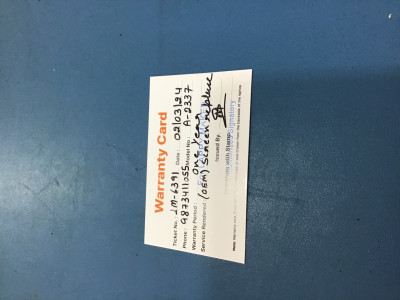 Warranty Card
Ticket No.: JM-6391 Date: 02/03/24
Phone: 9873411055 Model No.: A-2337
Warranty Period: One Year
Service Rendered: (OEM) Screen Replace
Issued By.
with Stamp
Signatory